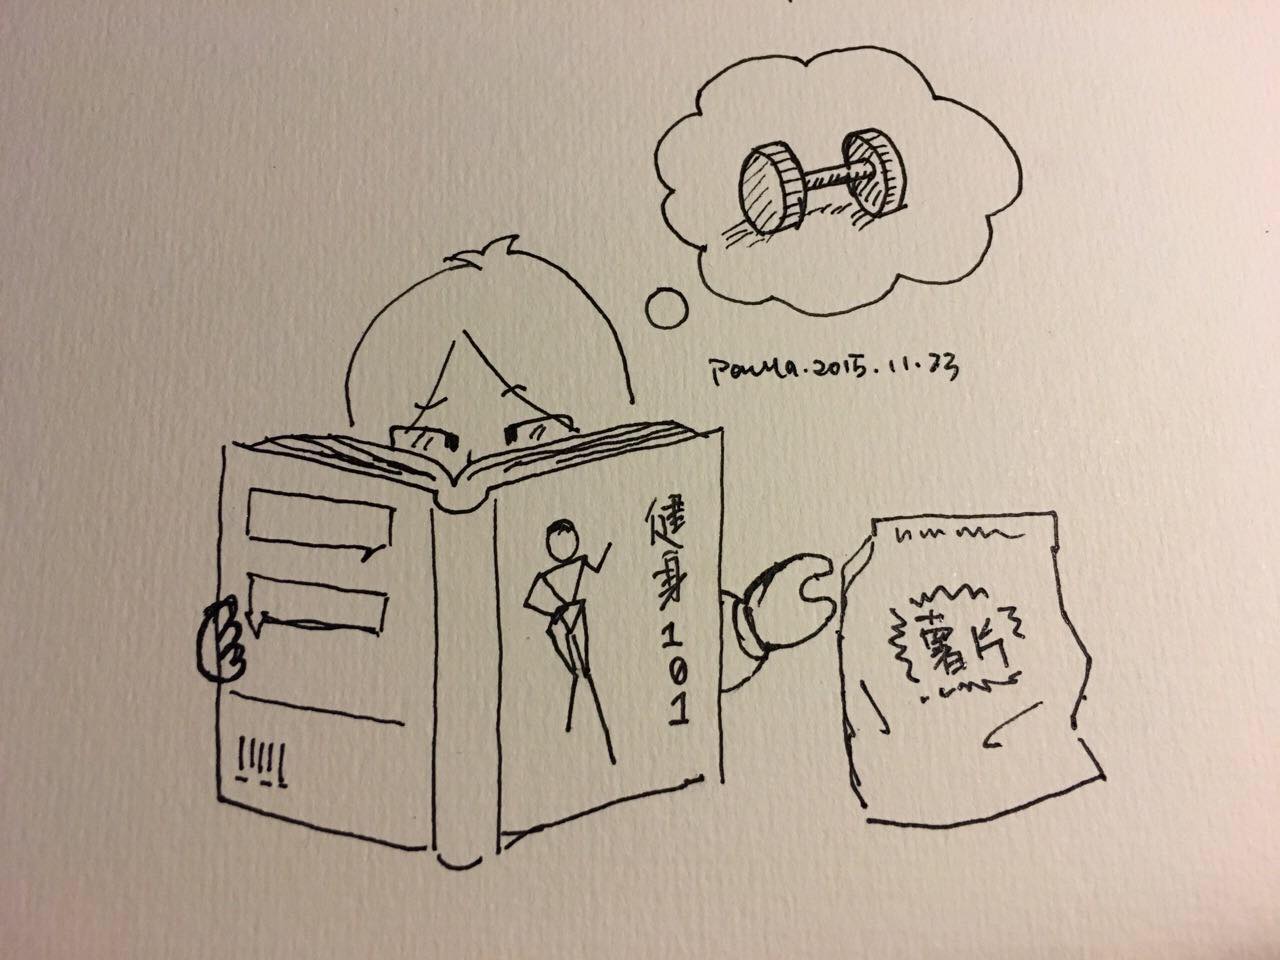 Paula.2015.11.23
健身101
薯片